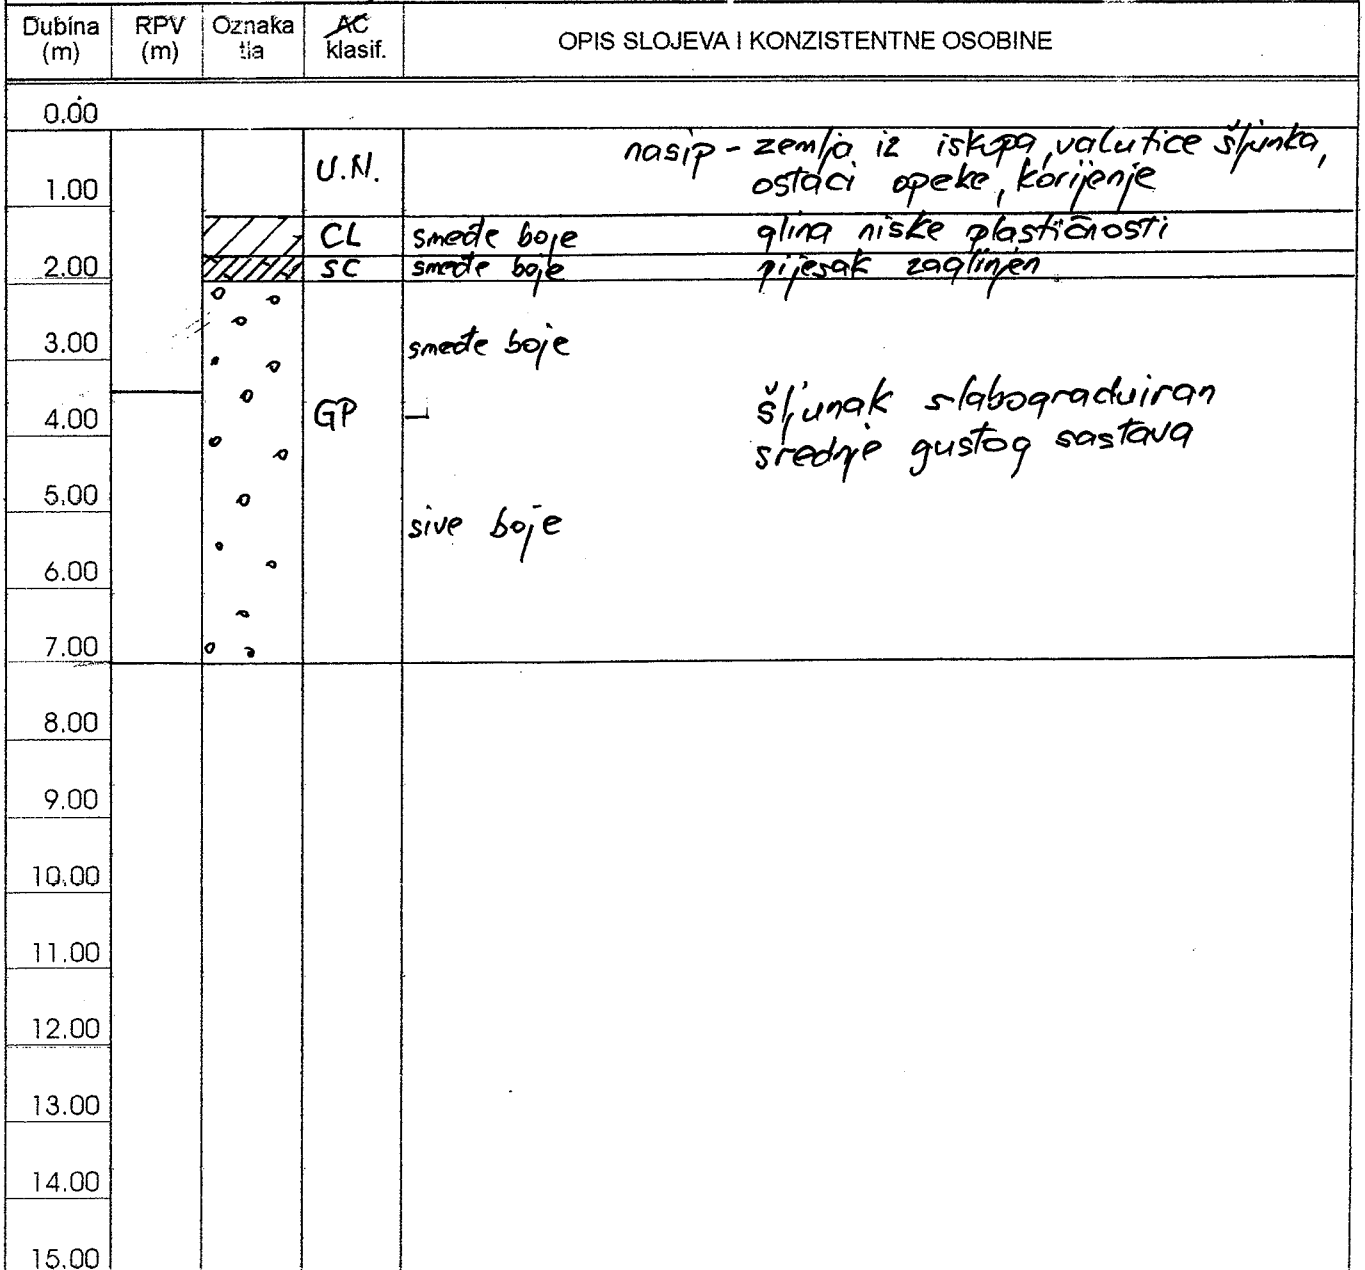 Dubina (m) RPV (m) Oznaka tla AC klasif. OPIS SLOJEVA I KONZISTENTNE OSOBINE
0.00
nasip - zemlja iz iskopa, valutice šljunka,
1.00 U.N. ostaci opeke, korijenje
CL smeđe boje glina niske plastičnosti
2.00 SC smeđe boje pijesak zaglinjen
3.00 smeđe boje
4.00 GP šljunak slabograduiran
srednje gustog sastava
5.00
sive boje
6.00
7.00
8.00
9.00
10.00
11.00
12.00
13.00
14.00
15.00